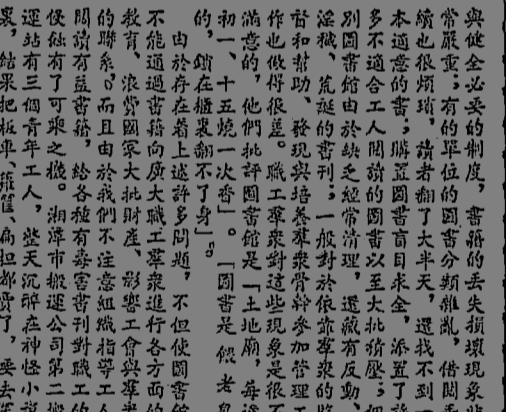 與健全必要的制度，書籍的丟失損壞現象
常嚴重；有的單位的圖書分類雜亂，借閱手
續也很煩瑣，讀者翻了大半天，還找不到一
本適意的書；購置圖書盲目求全，添置了許
多不適合工人閱讀的圖書以至大批積壓；
別圖書館由於缺乏經常清理，還藏有反動、
淫穢、荒誕的書刊；一般對於依靠羣衆的
督和幫助、發現與培養羣衆骨幹參加管理工
作也做得很差。職工羣衆對這些現象是很不
滿意的，他們批評圖書館是「土地廟，每逢
初一、十五燒一次香」。「圖書是 老
的，鎖在櫃裏翻不了身」。
由於存在着上述許多問題，不但使圖書館
不能通過書籍向廣大職工羣衆進行各方面的
教育、浪費國家大批財產、影響工會與羣衆
的聯系，而且由於我們不注意組織指導工人
閱讀有益書籍，給各種有毒害書刊對職工的
侵蝕有了可乘之機。湘潭市搬運公司第二搬
運站有三個青年工人，整天沉醉在神怪小說
裏，結果把板車、籮筐、扁担都賣了，要去